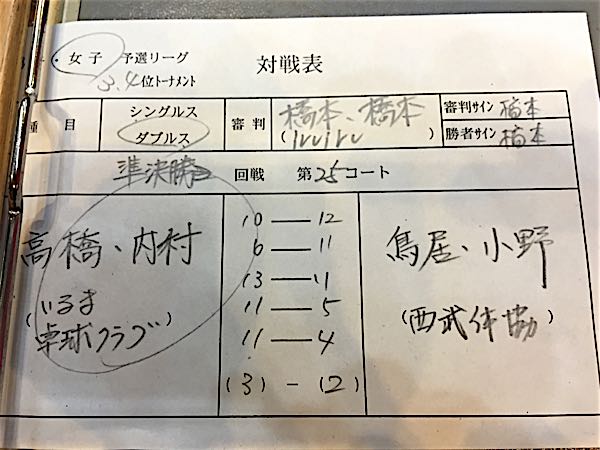 ・女子 予選リーグ 対戦表
3.4位トーナメント
種目 シングルス ダブルス 審判 橋本、橋本 (iruiru) 審判サイン 橋本
勝者サイン 橋本
準決勝 回戦 第25コート
高橋、内村 (いるま卓球クラブ)
10 — 12
6 — 11
13 — 11
11 — 5
11 — 4
(3) - (2)
鳥居、小野
(西武体協)